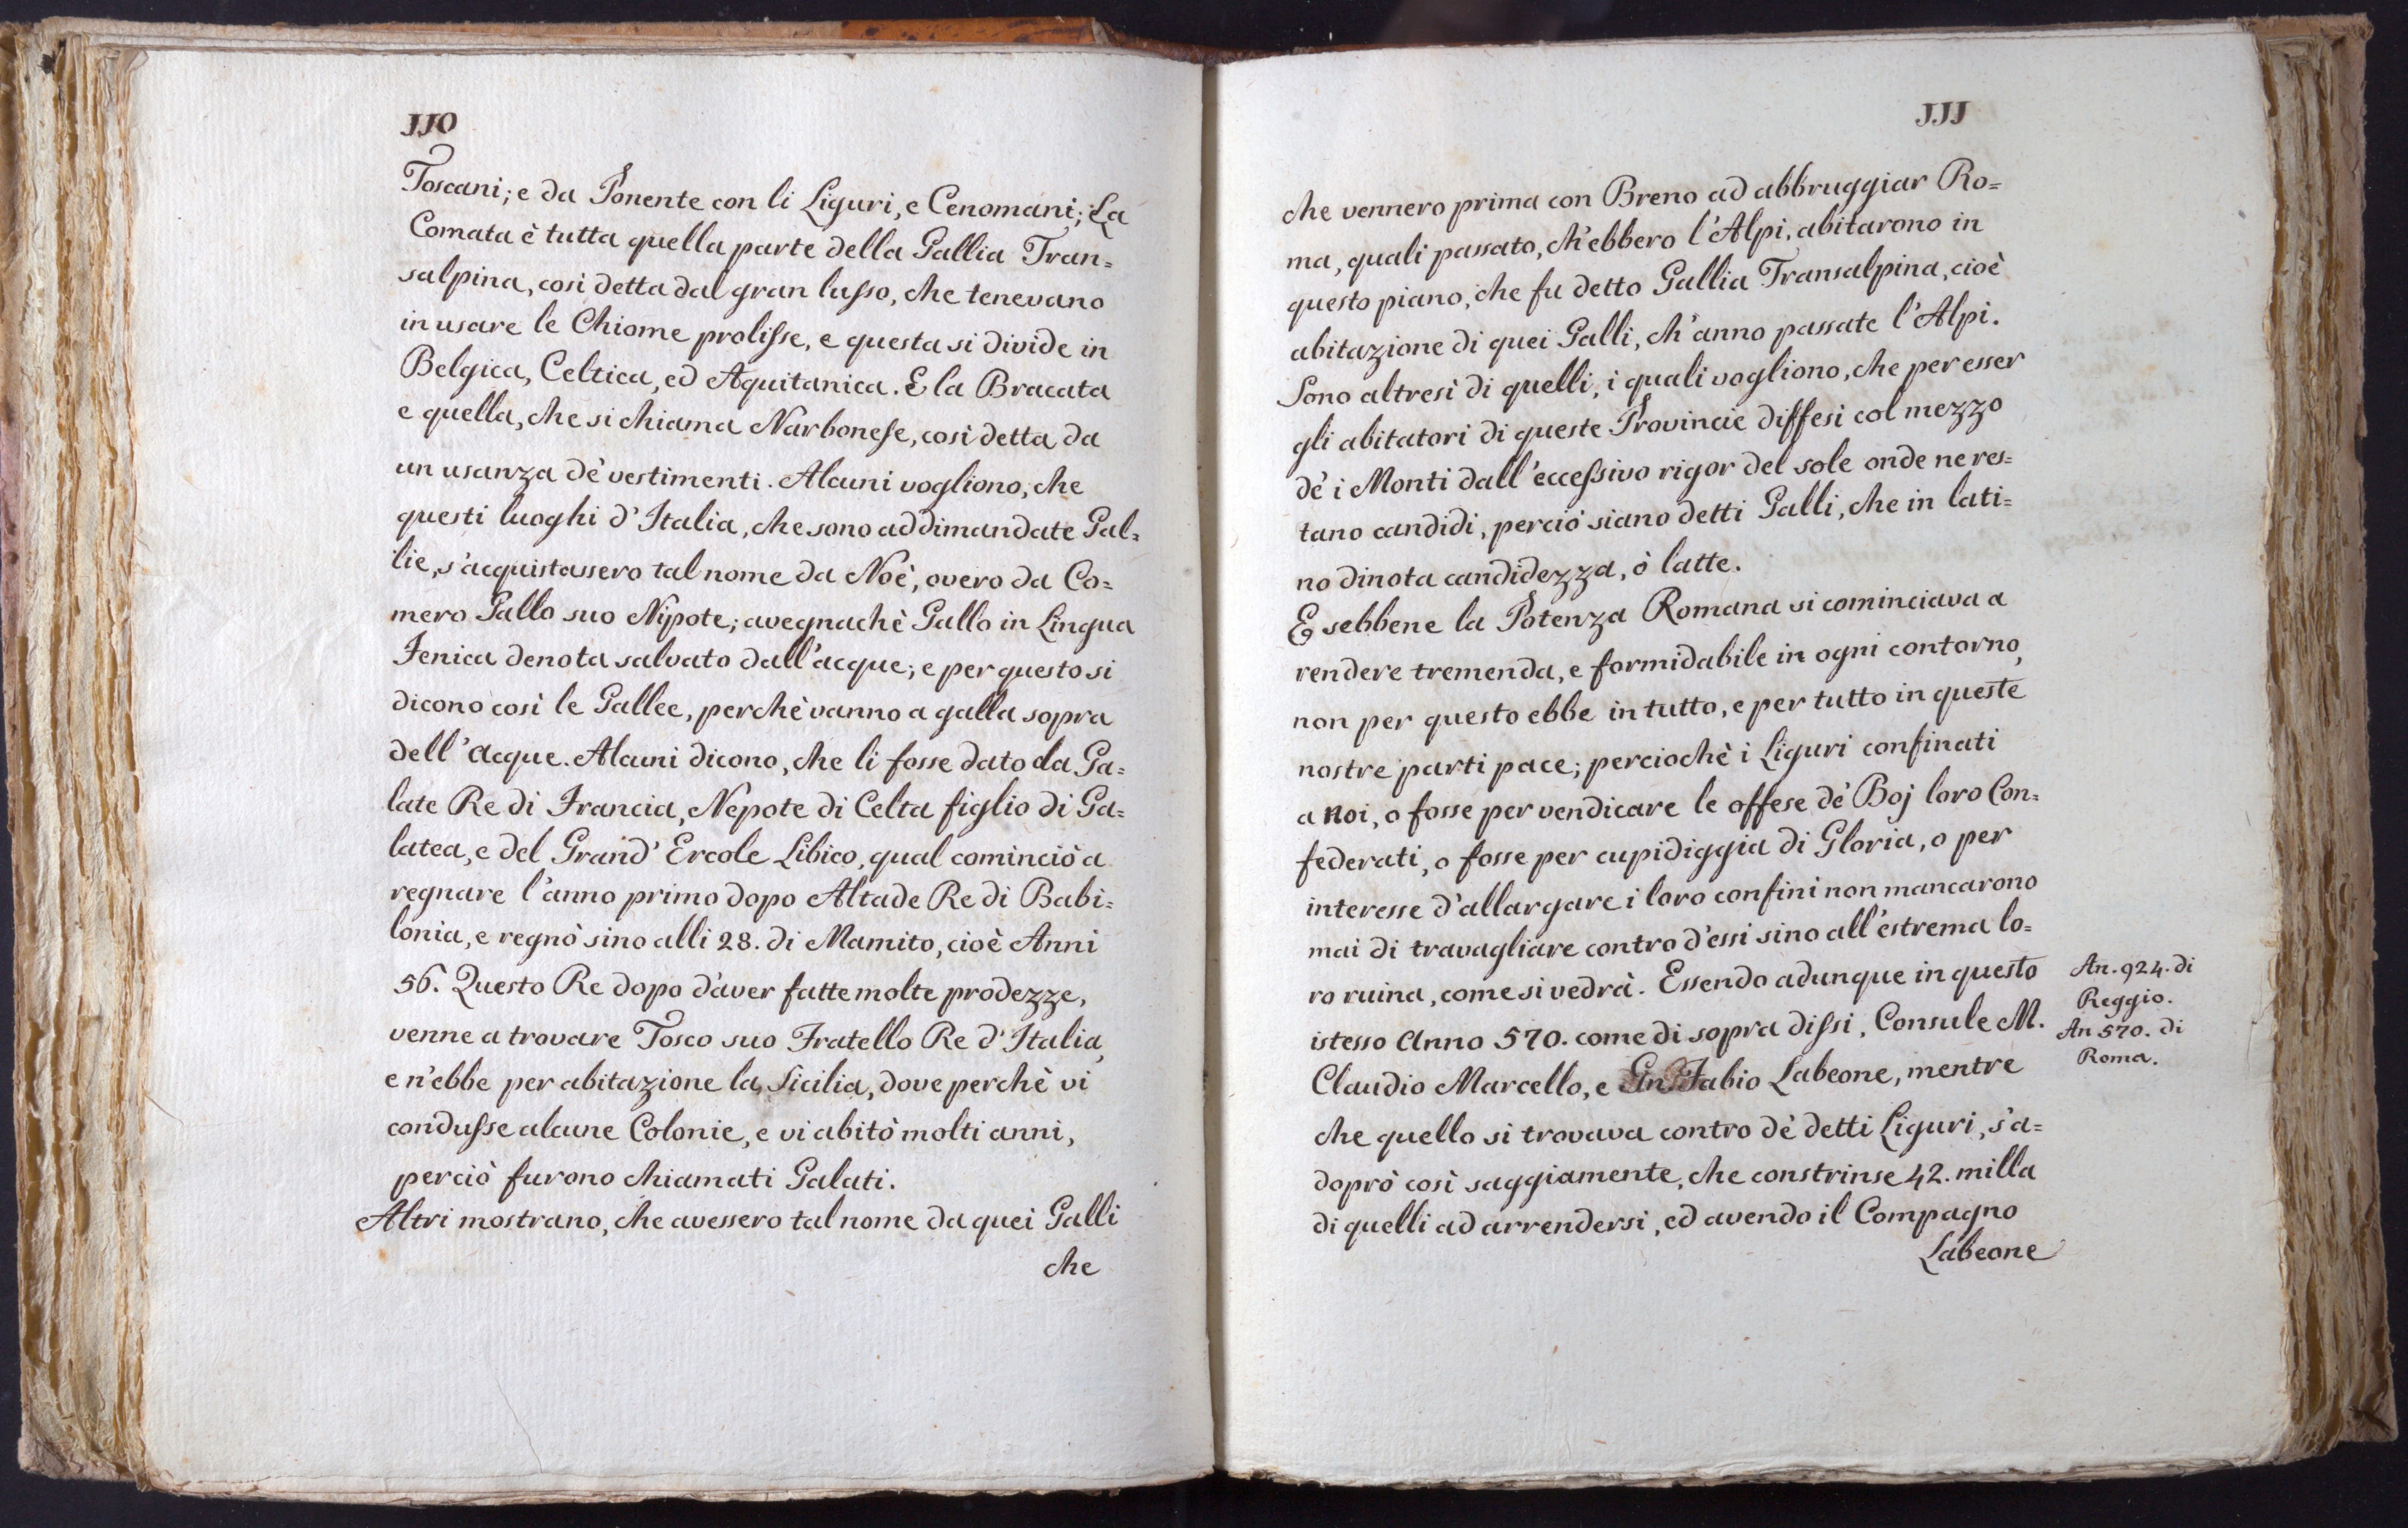 110
Toscani; e da Ponente con li Liguri, e Cenomani; La
Comata è tutta quella parte della Gallia Tran=
salpina, così detta dal gran lusso, che tenevano
in usare le Chiome prolisse, e questa si divide in
Belgica, Celtica, ed Aquitanica. E la Bracata
e quella, che si chiama Narbonese, così detta da
un usanza dè vestimenti. Alcuni vogliono, che
questi luoghi d'Italia, che sono addimandate Gal=
lie, s'acquistassero tal nome da Noè, overo da Co=
mero Gallo suo Nipote; avegnachè Gallo in Lingua
Fenica denota salvato dall'acque; e per questo si
dicono così le Gallee, perchè vanno a galla sopra
dell'acque. Alcuni dicono, che li fosse dato da Ga=
late Re di Francia, Nepote di Celta figlio di Ga=
latea, e del Grand' Ercole Libico, qual cominciò a
regnare l'anno primo dopo Altade Re di Babi=
lonia, e regnò sino alli 28. di Mamito, cioè Anni
56. Questo Re dopo d'aver fatte molte prodezze,
venne a trovare Tosco suo Fratello Re d'Italia,
e n'ebbe per abitazione la Sicilia, dove perchè vi
condusse alcune Colonie, e vi abitò molti anni,
perciò furono chiamati Galati.
Altri mostrano, che avessero tal nome da quei Galli
che
111
che vennero prima con Breno ad abbruggiar Ro=
ma, quali passato, ch'ebbero l'Alpi, abitarono in
questo piano, che fu detto Gallia Transalpina, cioè
abitazione di quei Galli, ch'anno passate l'Alpi.
Sono altresì di quelli, i quali vogliono, che per esser
gli abitatori di queste Provincie diffesi col mezzo
dè i Monti dall'eccessivo rigor del sole onde ne res=
tano candidi, perciò siano detti Galli, che in lati=
no dinota candidezza, ò latte.
E sebbene la Potenza Romana si cominciava a
rendere tremenda, e formidabile in ogni contorno,
non per questo ebbe in tutto, e per tutto in queste
nostre parti pace; perciochè i Liguri confinati
a noi, o fosse per vendicare le offese dè Boj loro Con=
federati, o fosse per cupidiggia di Gloria, o per
interesse d'allargare i loro confini non mancarono
mai di travagliare contro d'essi sino all'estrema lo=
ro ruina, come si vedrà. Essendo adunque in questo
istesso Anno 570. come di sopra dissi, Consule M.
Claudio Marcello, e Gn. Fabio Labeone, mentre
che quello si trovava contro dè detti Liguri, s'a=
doprò così saggiamente, che constrinse 42. milla
di quelli ad arrendersi, ed avendo il Compagno
Labeone
An. 924. di
Reggio.
An 570. di
Roma.